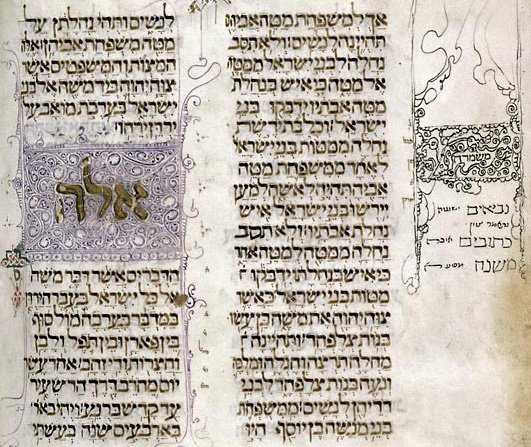 אך למשפחת מטה אביהם
תהיינה לנשים ולא תסב
נחלה לבני ישראל ממטה
אל מטה כי איש בנחלת
מטה אבתיו ידבקו בני
ישראל וכל בת ירשת
נחלה ממטות בני ישראל
לאחד ממשפחת מטה
אביה תהיה לאשה למען
יירשו בני ישראל איש
נחלת אבתיו ולא תסב
נחלה ממטה למטה אחר
כי איש בנחלתו ידבקו
מטות בני ישראל כאשר
צוה יהוה את משה כן עשו
בנות צלפחד ותהיינה
מחלה תרצה וחגלה ומלכה
ונעה בנות צלפחד לבני
דדיהן לנשים ממשפחת
בני מנשה בן יוסף היו
לנשים ותהי נחלתן על
מטה משפחת אביהן אלה
המצות והמשפטים אשר
צוה יהוה ביד משה אל בני
ישראל בערבת מואב על
ירדן ירחו
אלה
הדברים אשר דבר משה
אל כל ישראל בעבר הירדן
במדבר בערבה מול סוף
בין פארן ובין תפל ולבן
וחצרת ודי זהב אחד עשר
יום מחרב דרך הר שעיר
עד קדש ברנע ויהי
בארבעים שנה בעשתי
נביאים
כתובים
משנה